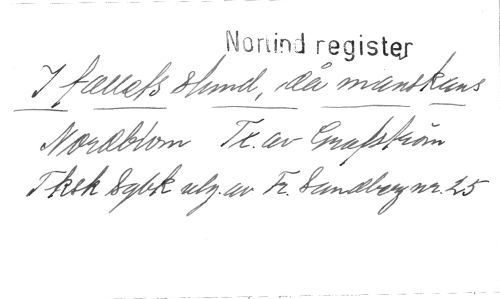 Norlind register
I fallets stund, då manskans
Nordblom Tx. av Grafström
Fksk Sgbk utg. av Fr. Sandberg nr. 25